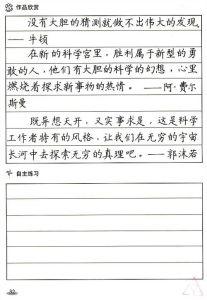 作品欣赏
没有大胆的猜测就做不出伟大的发现。
——牛顿
在新的科学宫里，胜利属于新型的勇
敢的人，他们有大胆的科学的幻想，心里
燃烧着探求新事物的热情。——阿·费尔
斯曼
既异想天开，又实事求是，这是科学
工作者特有的风格，让我们在无穷的宇宙
长河中去探索无穷的真理吧。——郭沫若
自主练习